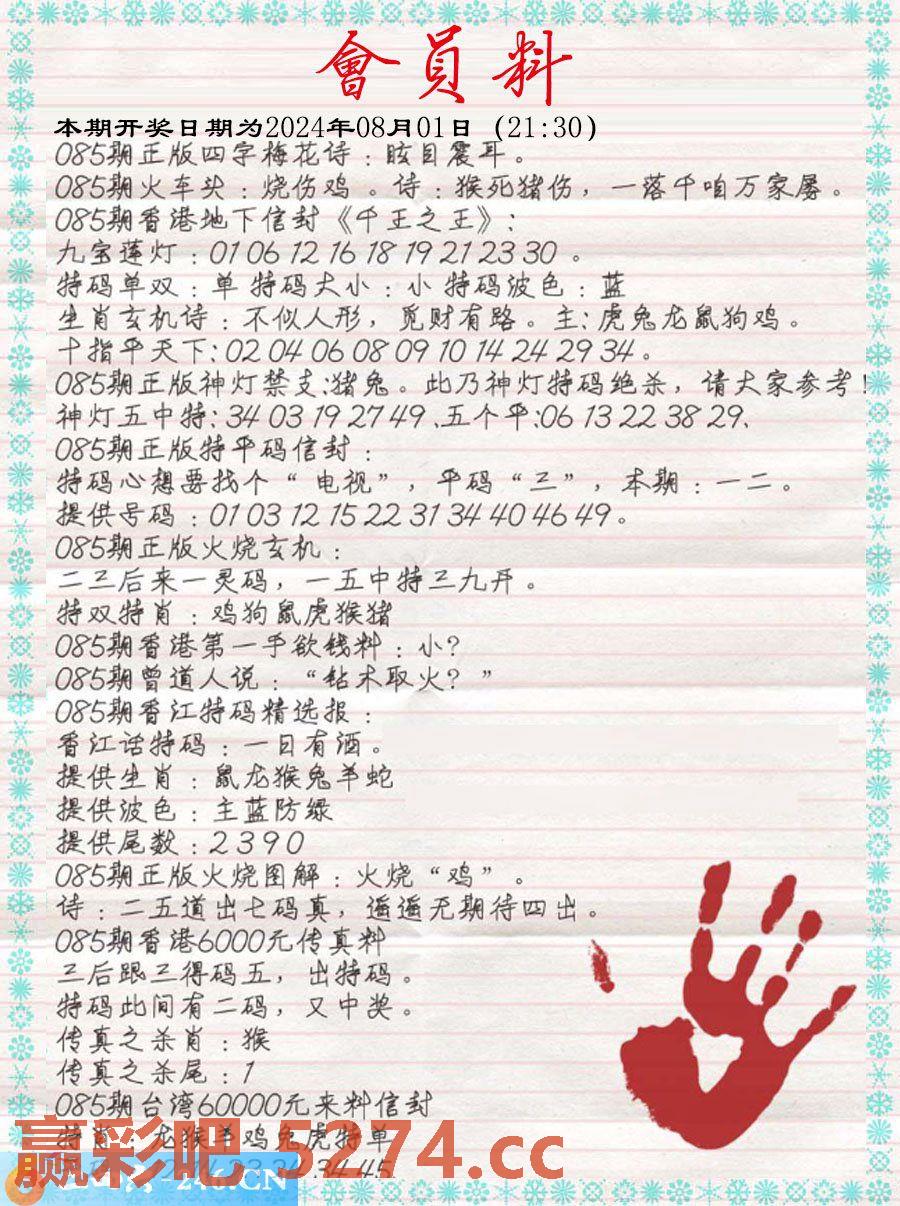 會員料
本期开奖日期为2024年08月01日（21:30）
085期正版四字梅花诗：眩目震耳。
085期火车头：烧伤鸡。诗：猴死猪伤，一落千咱万家屡。
085期香港地下信封《千王之王》：
九宝莲灯：01 06 12 16 18 19 21 23 30 。
特码单双：单 特码大小：小 特码波色：蓝
生肖玄机诗：不似人形，觅财有路。主：虎兔龙鼠狗鸡。
十指平天下：02 04 06 08 09 10 14 24 29 34。
085期正版神灯禁支：猪兔。此乃神灯特码绝杀，请大家参考！
神灯五中特：34 03 19 27 49 、五个平：06 13 22 38 29、
085期正版特平码信封：
特码心想要找个“ 电视”，平码“三”，本期：一二。
提供号码：01 03 12 15 22 31 34 40 46 49。
085期正版火烧玄机：
二三后来一灵码，一五中特三九开。
特双特肖：鸡狗鼠虎猴猪
085期香港第一手欲钱料：小？
085期曾道人说：“钻木取火？”
085期香江特码精选报：
香江话特码：一日有酒。
提供生肖：鼠龙猴兔羊蛇
提供波色：主蓝防绿
提供尾数：2 3 9 0
085期正版火烧图解：火烧“鸡”。
诗：二五道出七码真，遥遥无期待四出。
085期香港6000元传真料
三后跟三得码五，出特码。
特码此间有二码，又中奖。
传真之杀肖：猴
传真之杀尾：1
085期台湾60000元来料信封
特肖：龙猴羊鸡兔虎特单
赢彩吧.5274.cc